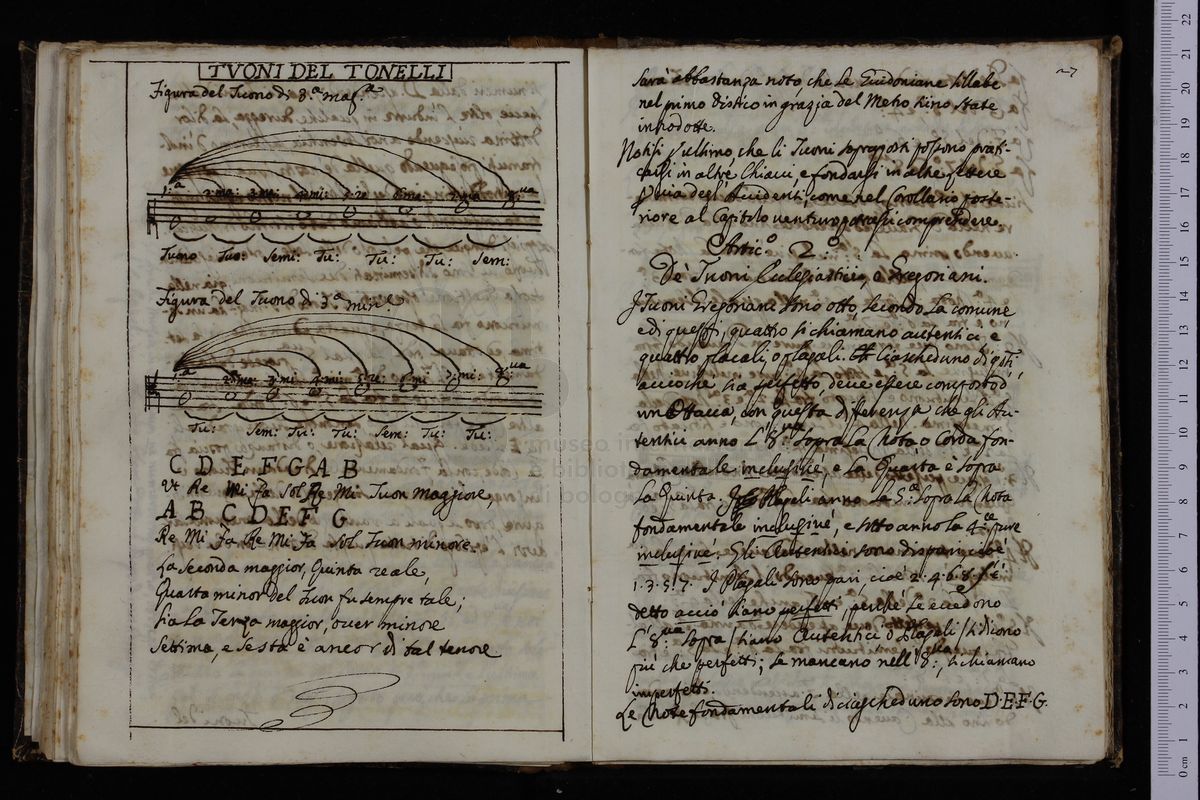 TVONI DEL TONELLI
Figura del Tuono di 3.ª mag.re
1.ª 2: ma: 3: ma: 4: mi: 5: re 6: ma: 7: ma 8.ua
Tuono Tuo: Semi: Tu: Tu: Tu: Sem:
Figura del Tuono di 3.ª min.re
1.ª 2: ma: 3: mi 4: mi: 5: re: 6: mi 7: mi: 8: ua
Tu: Sem: Tu: Tu: Sem: Tu: Tu:
C D E F G A B
Vt Re Mi Fa Sol Re Mi Tuon maggiore,
A B C D E F G
Re Mi Fa Re Mi Fa Sol Tuon minore.
La seconda maggior, Quinta reale,
Quarta minor del Tuon fu sempre tale;
Sia La Terza maggior, ouer minore
Settima, e Sesta è ancor di tal tenore
27
sarà abbastanza noto, che le Guidoniane sillabe
nel primo distico in grazia del Metro sino state
introdotte.
Notisi p ultimo, che li Tuoni sopraposti possono prati-
carsi in altre Chiavi, e fondarsi in altre lettere
p via degl' Accidenti, come nel Corollario poste-
riore al Capitolo venturo potrassi comprendere.
Artic.º 2.º
De' Tuoni Ecclesiastici, e Gregoriani.
I Tuoni Gregoriani sono otto, secondo la comune,
e di questi, quattro si chiamano autentici, e
quattro placali, o plagali. Ciascheduno di qsti,
accioche sia perfetto, deve essere composto d'
un Ottava, con questa differenza che gli Au-
tentici anno L' 8.ua sopra La Nota o Corda fon-
damentale inclusivè, e la Quarta è sopra
La Quinta. I Plagali anno la 5.ª sopra la Nota
fondamentale inclusivè, e sotto anno la 4.ª pure
inclusivè. Gli Autentici sono dispari, cioè
1. 3. 5. 7. I Plagali sono pari, cioè 2. 4. 6. 8. S' è
detto acciò siano perfetti perchè se eccedono
L' 8.ua sopra / siano Autentici o Plagali / si dicono
più che perfetti; se mancano nell' 8.ua, si chiamano
imperfetti.
Le Note fondamentali di ciascheduno sono D. E. F. G.